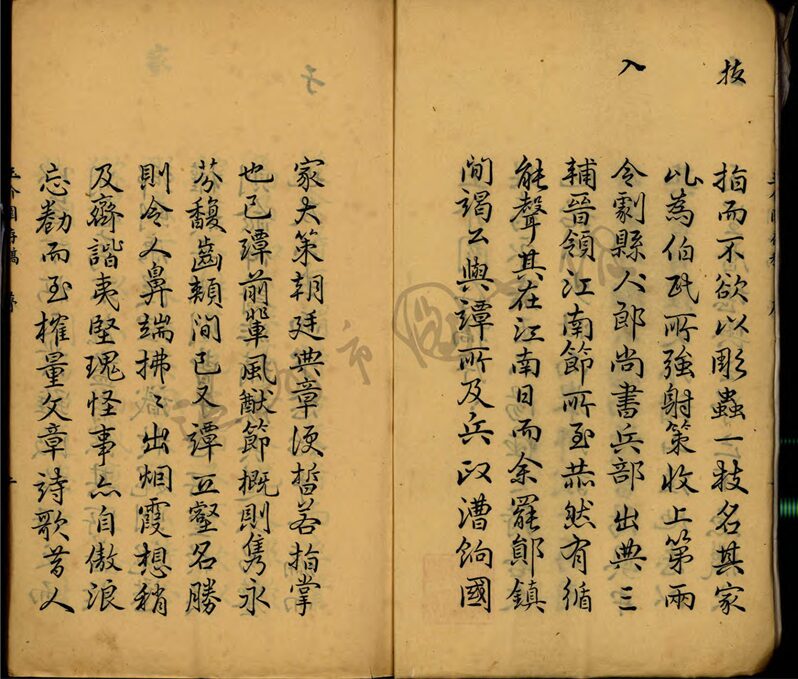 技
入
指而不欲以彫蟲一技名其家
以為伯氏所強射策收上第兩
令劇縣人郎尚書兵部出典三
輔晉領江南節所至恭然有循
能聲其在江南日而余罷鄖鎮
間謁公與譚所及兵政漕餉國
家大策朝廷典章便晳若指掌
也已譚前輩風猷節概則雋永
芬馥齒頰間已又譚丘壑名勝
則令人鼻端拂〻出烟霞想稍
及齊諧夷堅瑰怪事亦自傲浪
忘勌而至搉量文章詩歌昔人